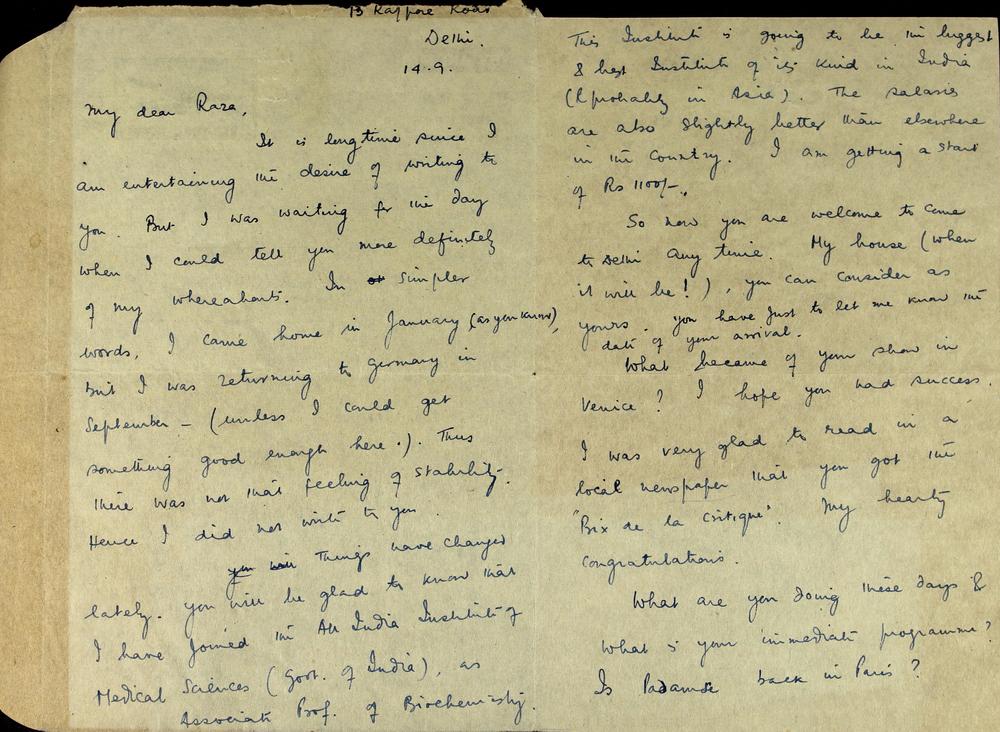 13 Rajpore Road
Delhi.
14.9.
My dear Raza,
It is long time since I
am entertaining the desire of writing to
you. But I was waiting for the day
when I could tell you more definitely
of my whereabouts. In simpler
words, I came home in January (as you know),
but I was returning to Germany in
September – (unless I could get
something good enough here.). Thus
there was not that feeling of stability.
Hence I did not write to you.
you will Things have changed
lately. You will be glad to know that
I have joined the All India Institute of
Medical Sciences (Govt. of India), as
Associate Prof. of Biochemistry.
This Institute is going to be the biggest
& best Institute of its kind in India
(& probably in Asia). The salaries
are also slightly better than elsewhere
in the country. I am getting a start
of Rs 1100/-.
So now you are welcome to come
to Delhi any time. My house (when
it will be!), you can consider as
yours. You have just to let me know the
date of your arrival.
What became of your show in
Venice? I hope you had success.
I was very glad to read in a
local newspaper that you got the
"Prix de la Critique". My hearty
congratulations.
What are you doing these days &
What is your immediate programme?
Is Padamse back in Paris?